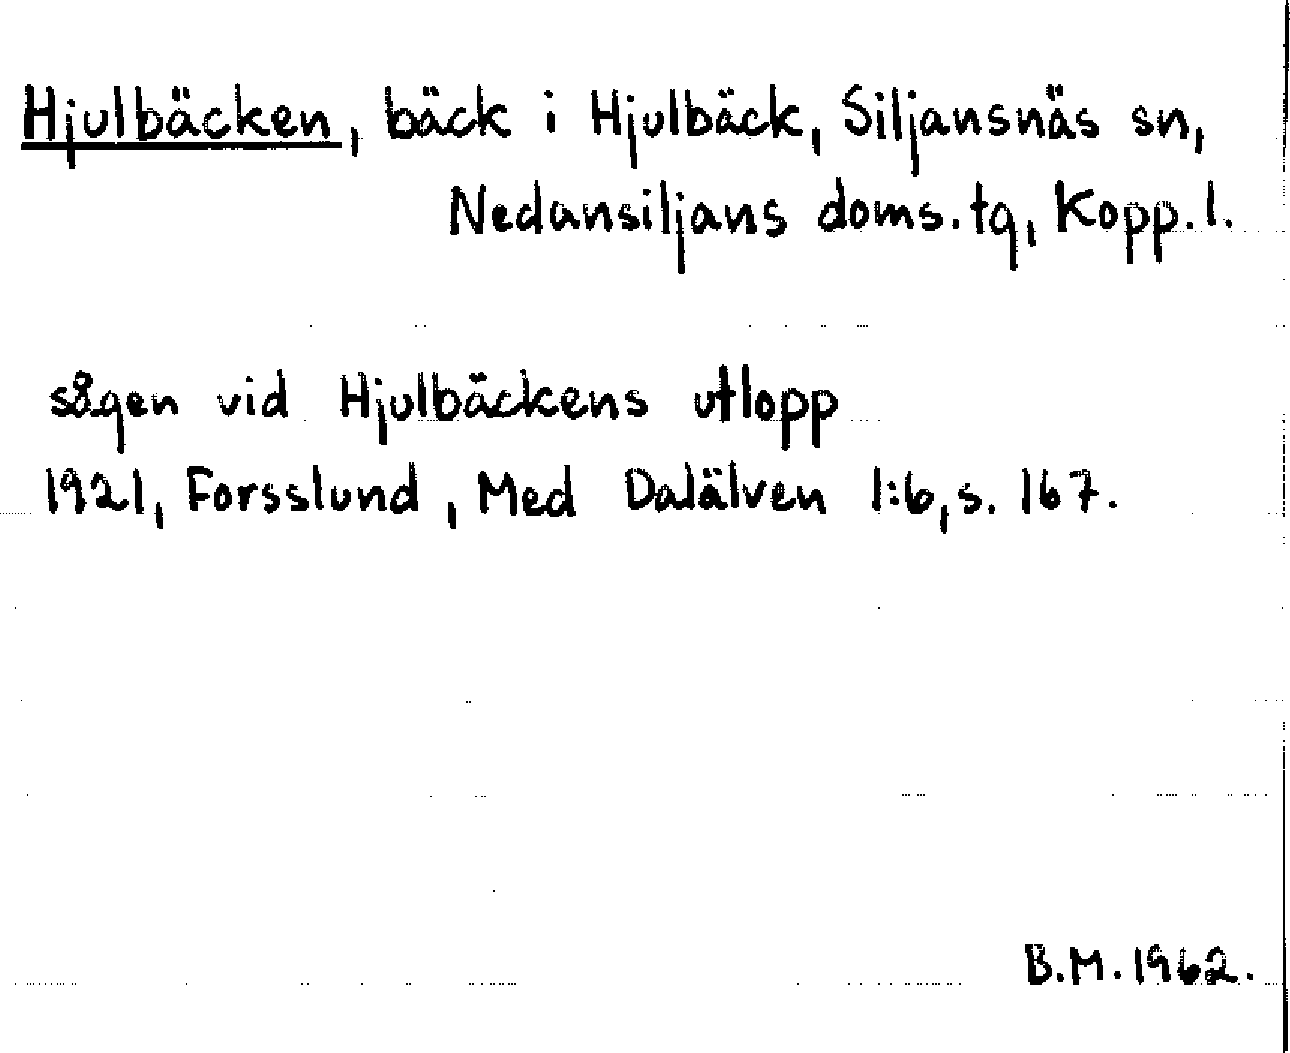 Hjulbäcken, bäck i Hjulbäck, Siljansnäs sn,
Nedansiljans doms.tg, Kopp.l.
sågen vid Hjulbäckens utlopp
1921, Forsslund, Med Dalälven 1:6, s. 167.
B.M. 1962.